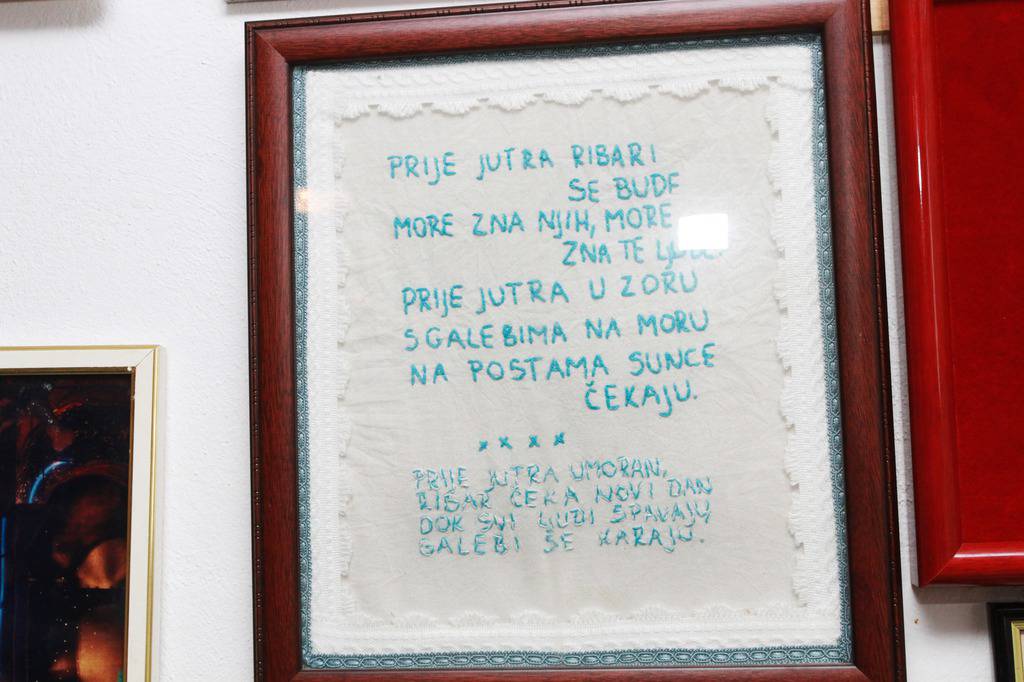 PRIJE JUTRA RIBARI
SE BUDE
MORE ZNA NJIH, MORE
ZNA TE
PRIJE JUTRA U ZORU
S GALEBIMA NA MORU
NA POSTAMA SUNCE
ČEKAJU.
x x x x
PRIJE JUTRA UMORAN,
RIBAR ČEKA NOVI DAN
DOK SVI LJUDI SPAVAJU
GALEBI SE KARAJU.